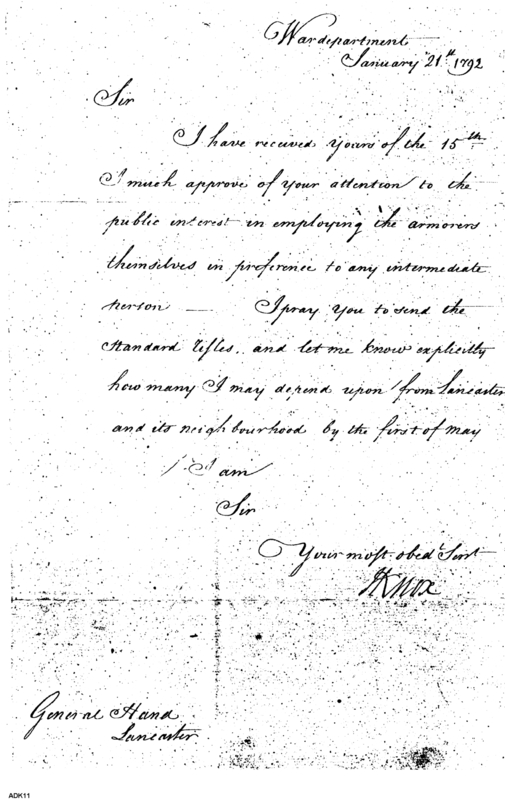 War department
January 21st 1792
Sir
I have received yours of the 15th
I much approve of your attention to the
public interest in employing the armorers
themselves in preference to any intermediate
person — I pray you to send the
Standard rifles, and let me know explicitly
how many I may depend upon from Lancaster
and its neighbourhood by the first of May
I am
Sir
Your most obed Servt
HKnox
General Hand
Lancaster
ADK11